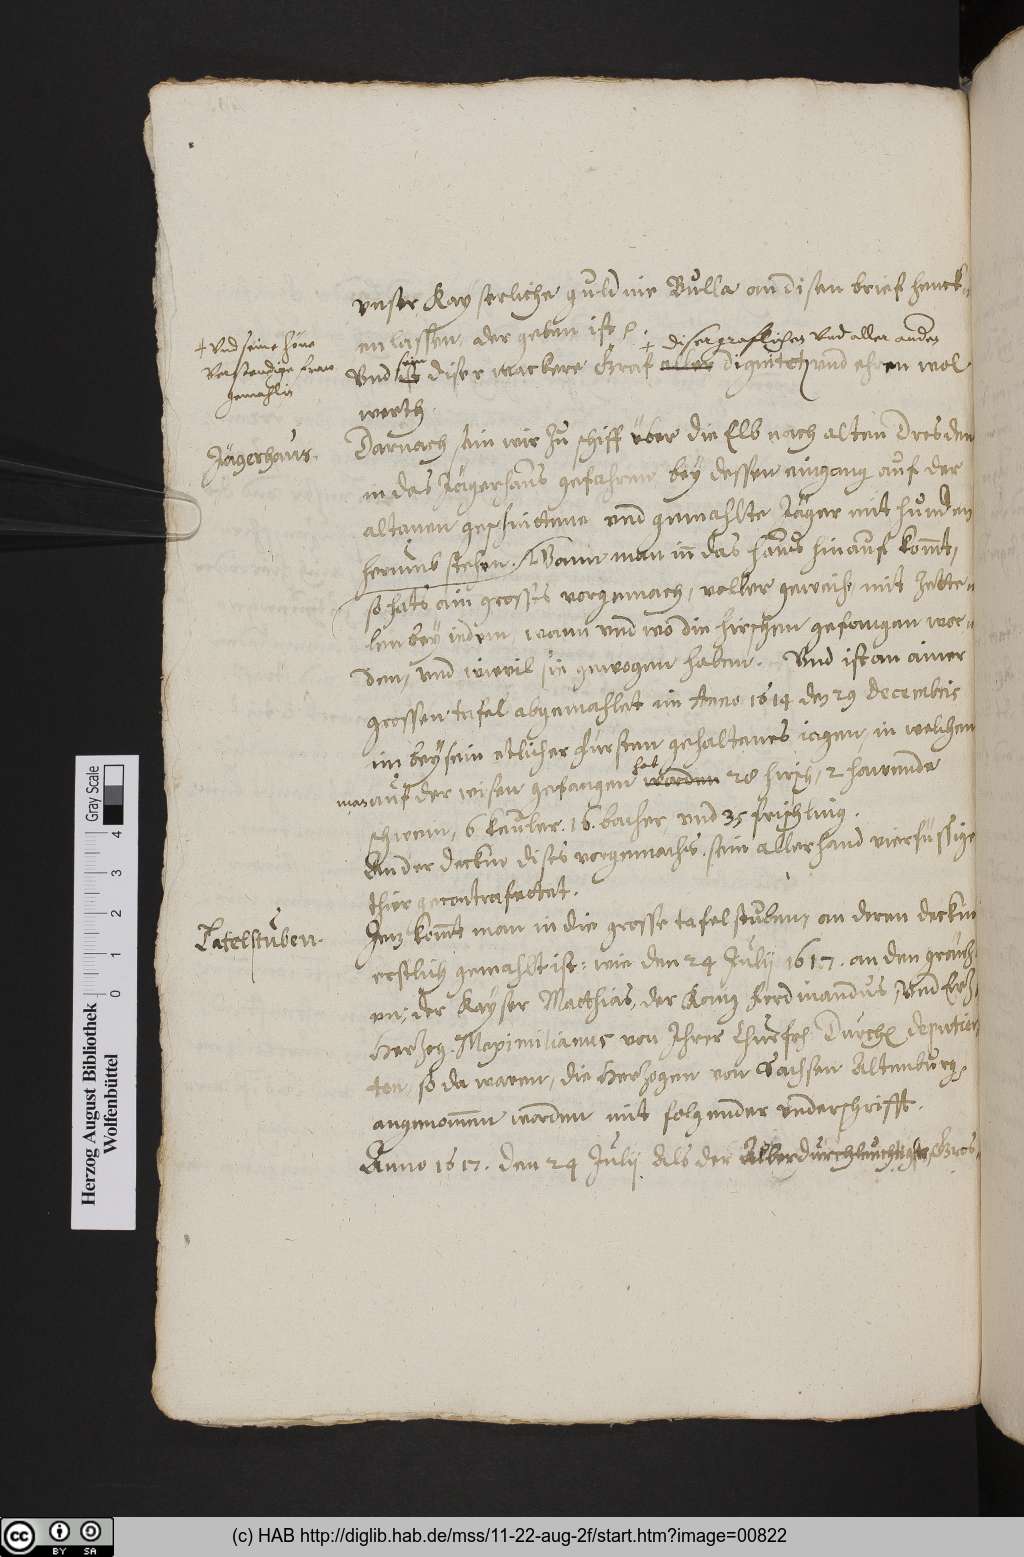 unser Kayserliche guldine Bulla an disen brief henck-
en lassen, oder geben ist etc.
+ Vnd seine schöne
verstendige fraw
gemahlin
+ diser graflichen vnd aller andern
Vnd sein diser wackere Graf aller digniteten vnd ehren wol
werth.
Jägerhaus.
Darnach sein wir zu schiff über die Elb nach alten Dresden
in das Jägerhaus gefahren, bey dessen eingang auf der
altanen geschnittene vnd gemahlte Jäger mit hunden
herumb stehen. Wann man in das haus hinauf komt,
so hats ain grosses vorgemach, voller geweih, mit zette-
len bey iedem, wann vnd wo die hirschen gefangen wor-
den, vnd wievil sie gewogen haben. Vnd ist an ainer
grossen tafel abgemahlet ein Anno 1614 den 29 Decembris
im beysein etlicher fürsten gehaltenes iagen, in welchem
man auf der wisen gefangen hat worden 28 hirsch, 2 hawende
schwein, 6 keuler, 16 bacher, vnd 35 frischling.
An der deckin dises vorgemachs, sein allerhand vierfüssige
thier gecontrafectet.
Tafelstuben.
Jenz komt man in die grosse tafelstuben, an deren deckin
erstlich gemahlt ist: wie den 24 Julij 1617. an den gräntz-
en, der Kayser Matthias, der König Ferdinandus, Vnd Ertz-
Hertzog Maximilianus von Ihrer Churfel. Durchl. deputier-
ten, so da waren, die Hertzogen von Sachsen Altenburg,
angenommen worden mit folgender vnderschrifft.
Anno 1617. den 24 Julij Als der Allerdurchleuchtigste, Gros-
Herzog August Bibliothek
Wolfenbüttel
0 1 2 3 4
Gray Scale
cc BY SA
(c) HAB http://diglib.hab.de/mss/11-22-aug-2f/start.htm?image=00822